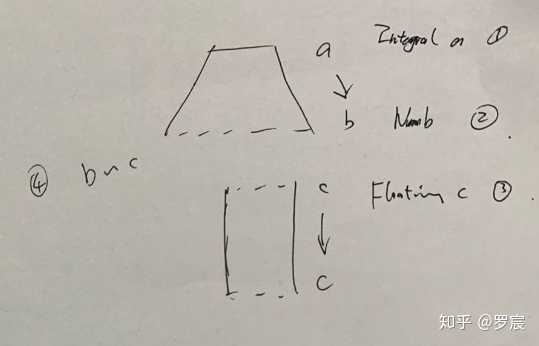 a Integral a ①
b Numb ②
④ b ~ c
c Floating c ③
c
知乎 @罗宸